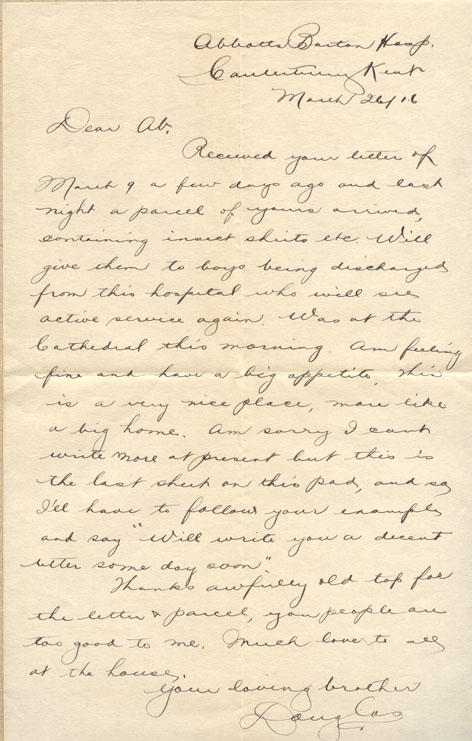 Abbotts Barton Hosp.
Canterbury Kent
March 26/16
Dear Ab.
Received your letter of
March 9 a few days ago and last
night a parcel of yours arrived,
containing insect shirts etc. Will
give them to boys being discharged
from this hospital who will see
active service again. Was at the
Cathedral this morning. Am feeling
fine and have a big appetite, this
is a very nice place, more like
a big home. Am sorry I cant
write more at present but this is
the last sheet on this pad, and so
I'll have to follow your example
and say "Will write you a decent
letter some day soon"
Thanks awfully old top for
the letter & parcel, you people are
too good to me. Much love to all
at the house.
Your loving brother
Douglas